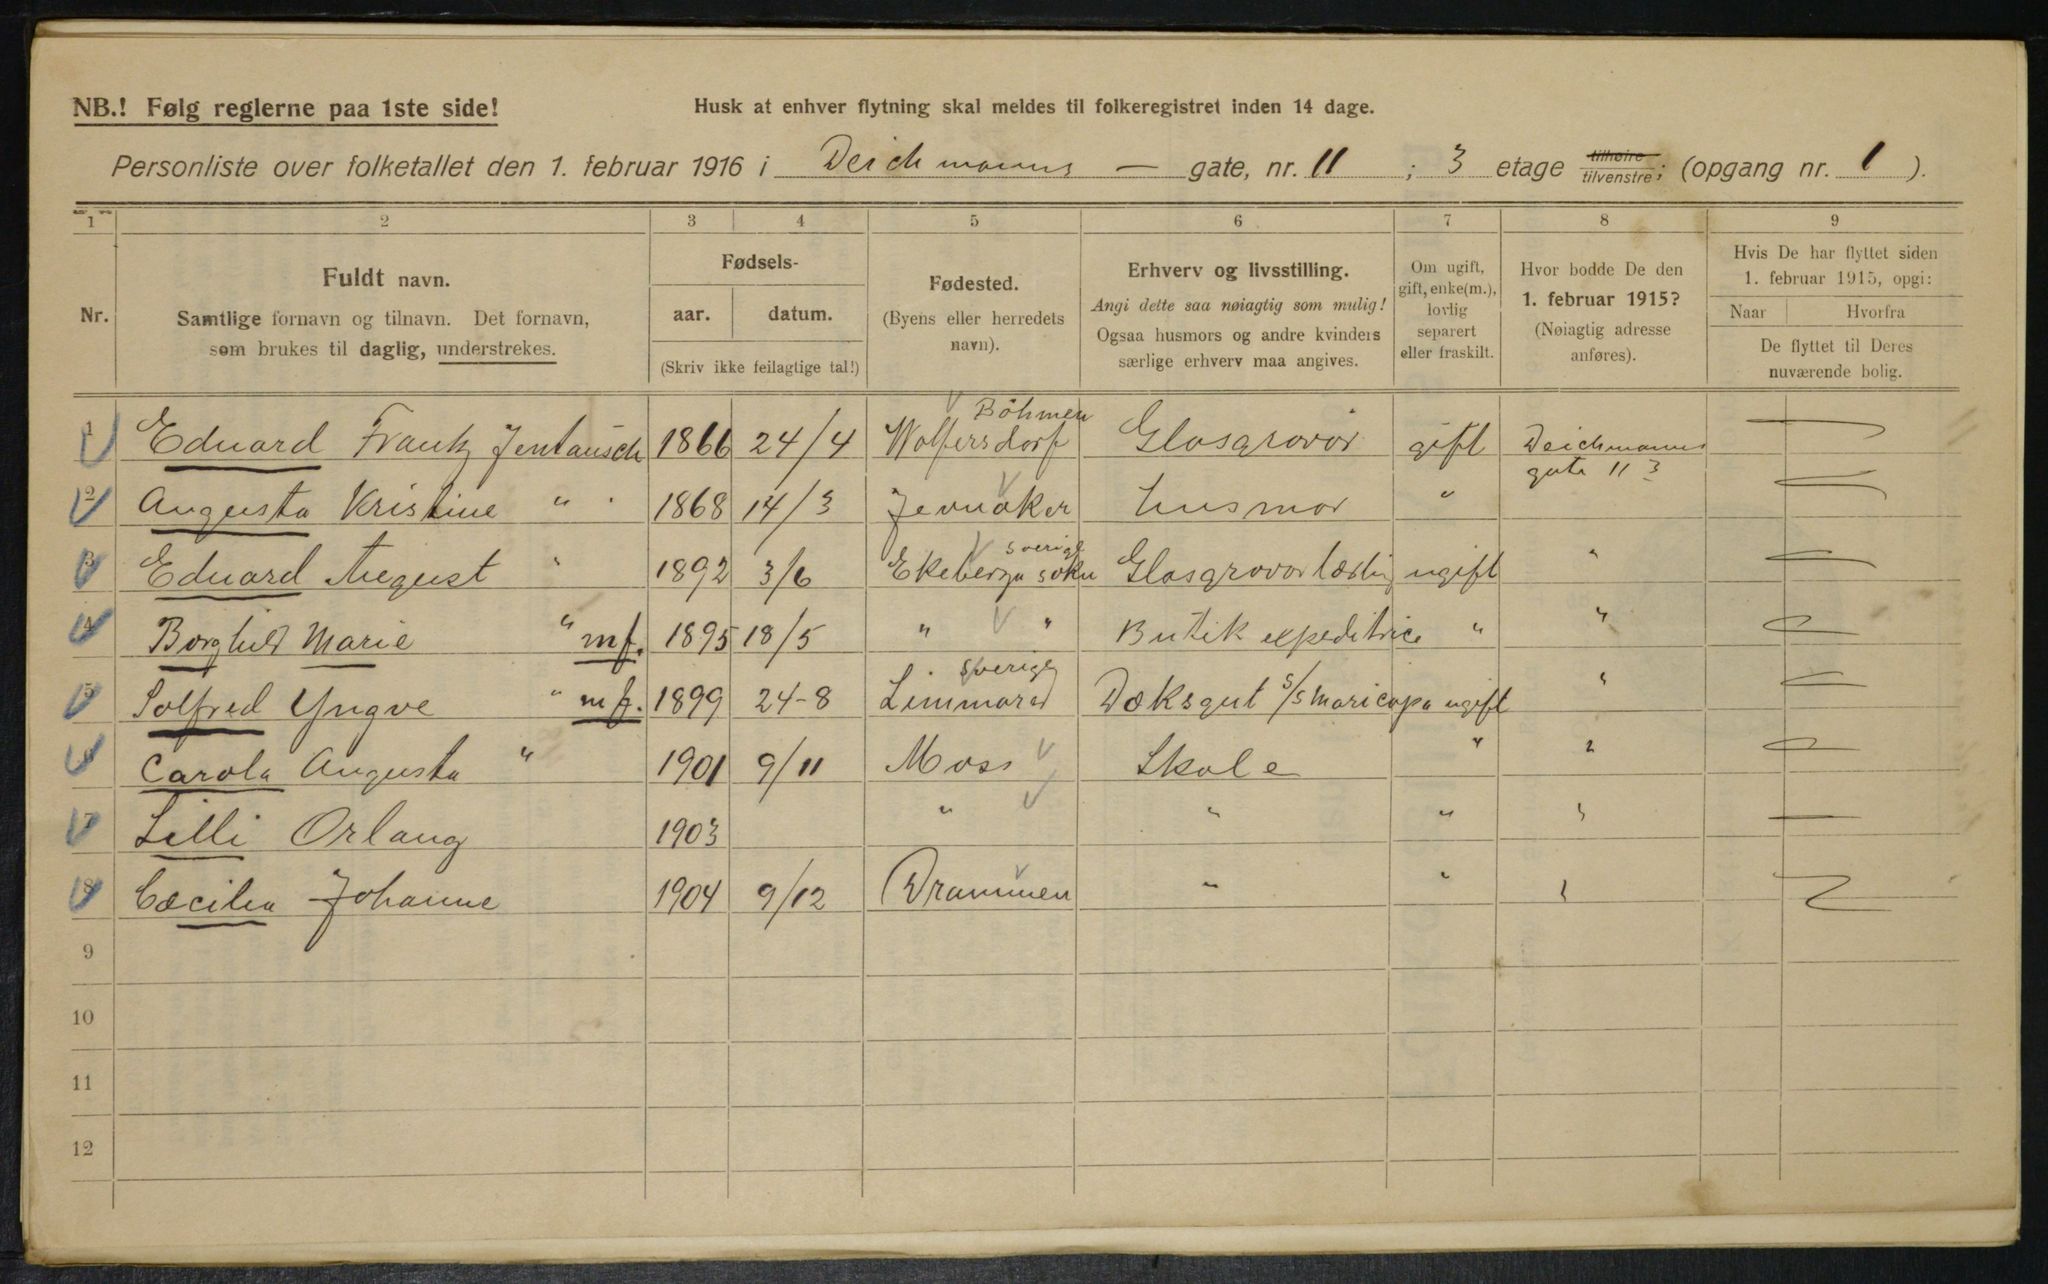 NB.! Følg reglerne paa 1ste side!
Husk at enhver flytning skal meldes til folkeregistret inden 14 dage.
Personliste over folketallet den 1. februar 1916 i Deichmanns — gate, nr. 11 ; 3 etage tilhøire tilvenstre; (opgang nr. 1 ).
1 2 3 4 5 6 7 8 9
Nr.
Fuldt navn.
Samtlige fornavn og tilnavn. Det fornavn,
som brukes til daglig, understrekes.
Fødsels-
aar. datum.
(Skriv ikke feilagtige tal!)
Fødested.
(Byens eller herredets
navn).
Erhverv og livsstilling.
Angi dette saa nøiagtig som mulig!
Ogsaa husmors og andre kvinders
særlige erhverv maa angives.
Om ugift,
gift, enke(m.),
lovlig
separert
eller fraskilt.
Hvor bodde De den
1. februar 1915?
(Nøiagtig adresse
anføres).
Hvis De har flyttet siden
1. februar 1915, opgi:
Naar Hvorfra
De flyttet til Deres
nuværende bolig.
1 Eduard Frantz Jentausch 1866 24/4 Wolfersdorf Böhmen Glasgravør gift Deichmanns gate 11 3 —
2 Augusta Kristine " 1868 14/3 Jevnaker husmor " —
3 Eduard August " 1892 3/6 Ekeberga sokn Sverige Glasgravørlærling ugift " —
4 Borghild Marie " mf. 1895 18/5 " " Butik expeditrice " " —
5 Solfred Yngve " mf. 1899 24-8 Limmared Sverige Dæksgut s/s Maricopa ugift " —
6 Carola Augusta " 1901 9/11 Moss Skole " " —
7 Lilli Orlaug 1903 " " " " —
8 Cæcilia Johanne 1904 9/12 Drammen " " " —
9
10
11
12